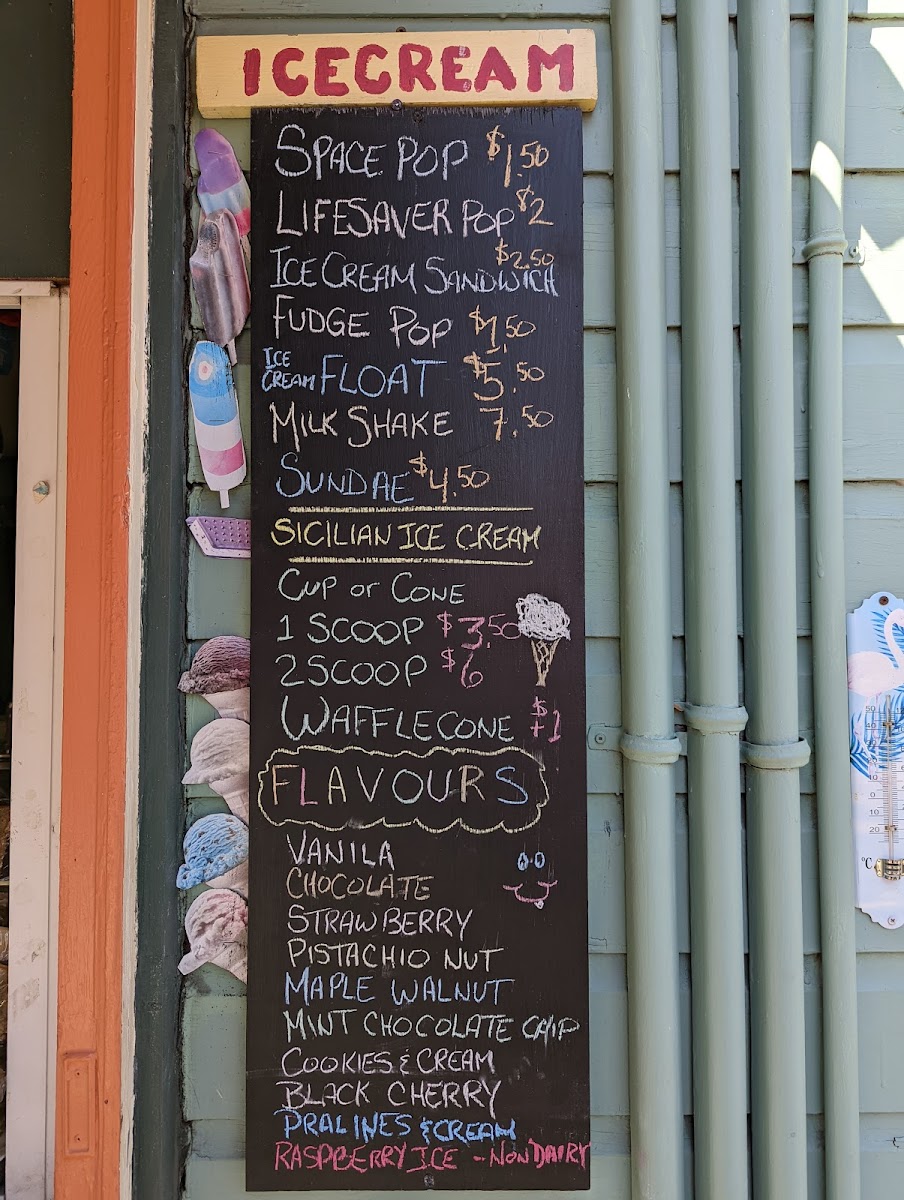 ICECREAM
SPACE POP $1.50
LIFESAVER POP $2
ICE CREAM SANDWICH $2.50
FUDGE POP $1.50
ICE CREAM FLOAT $5.50
MILK SHAKE 7.50
SUNDAE $4.50
SICILIAN ICE CREAM
CUP or CONE
1 SCOOP $3.50
2 SCOOP $6
WAFFLE CONE $1
FLAVOURS
VANILA
CHOCOLATE
STRAWBERRY
PISTACHIO NUT
MAPLE WALNUT
MINT CHOCOLATE CHIP
COOKIES & CREAM
BLACK CHERRY
PRALINES & CREAM
RASPBERRY ICE - NON DAIRY
°C